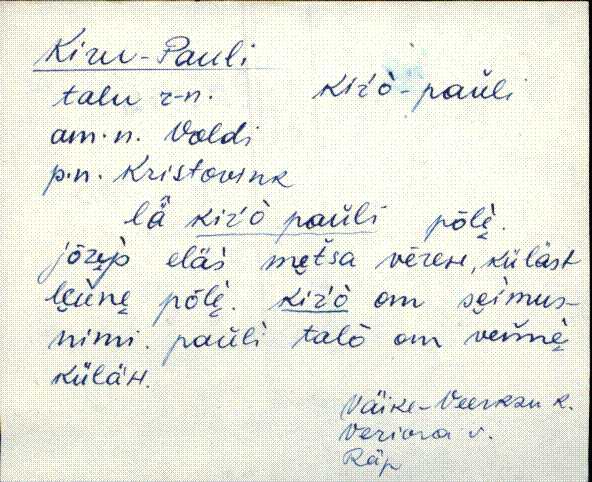 Kiru-Pauli
talu r-n. kiŕò-pau̬li
am.n. Voldi
p.n. Kristovink
lǟ kiŕò pau̬li pōlè̬.
jōzè̬p eläs me̬tsa vēreн, küläst
le̬u̬ne̬ pōlè̬. kiŕò om se̬imus-
nimi. pau̬lì talò om veu̬nè̬
küläн.
Väike-Veerksu k.
Veriora v.
Räp